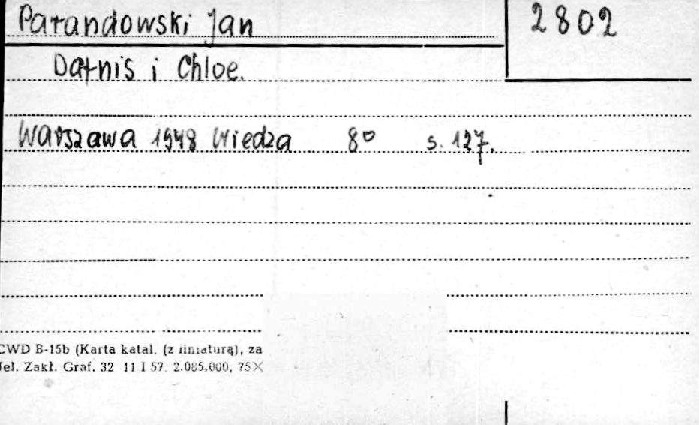 Parandowski Jan
2802
Dafnis i Chloe.
Warszawa 1948 Wiedza 8° s. 127.
CWD B-15b (Karta katal. (z liniaturą), za
Jel. Zakł. Graf. 32 11 I 57. 2.085.000, 75×